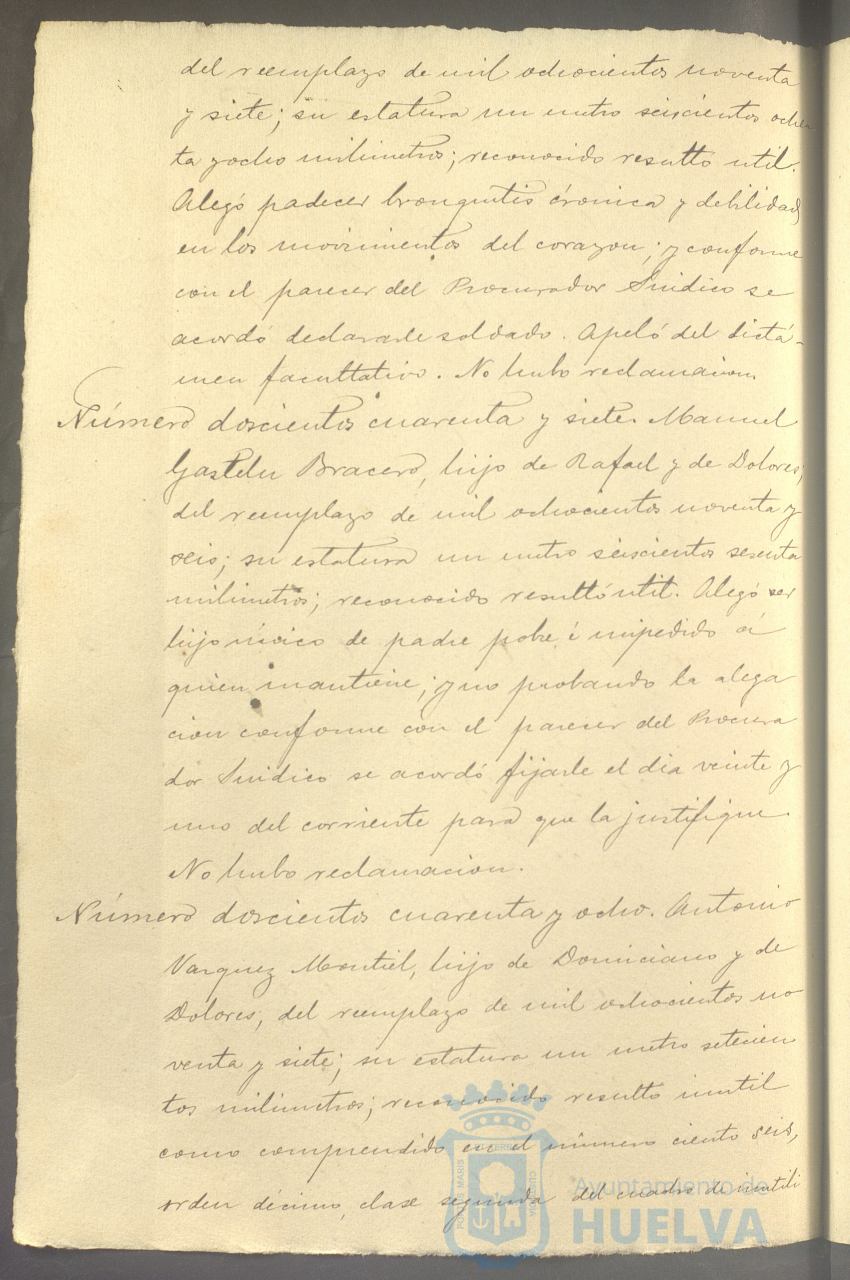 del reemplazo de mil ochocientos noventa
y siete; su estatura un metro seiscientos ochen
ta y ocho milimetros; reconocido resulto util.
Alegó padecer bronquitis crónica y debilidad
en los movimientos del corazon; y conforme
con el parecer del Procurador Sindico se
acordó declararle soldado. Apeló del dictá-
men facultativo. No hubo reclamacion.
Número doscientos cuarenta y siete. Manuel
Gastelu Bracero, hijo de Rafael y de Dolores;
del reemplazo de mil ochocientos noventa y
seis; su estatura un metro seiscientos sesenta
milimetros; reconocido resultó util. Alegó ser
hijo único de padre pobre é impedido á
quien mantiene; y no probando la alega
cion conforme con el parecer del Procura
dor Sindico se acordó fijarle el dia veinte y
uno del corriente para que la justifique.
No hubo reclamacion.
Número doscientos cuarenta y ocho. Antonio
Vazquez Montiel, hijo de Domiciano y de
Dolores, del reemplazo de mil ochocientos no
venta y siete; su estatura un metro setecien
tos milimetros; reconocido resulto inutil
como comprendido en el número ciento seis,
orden décimo, clase segunda del cuadro de inutili
Ayuntamiento de
HUELVA